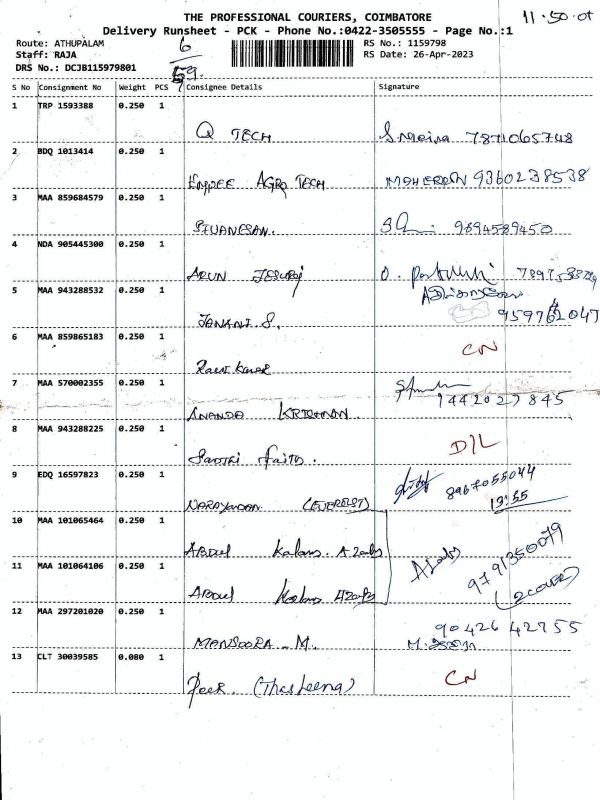 THE PROFESSIONAL COURIERS, COIMBATORE
11.50.01
Delivery Runsheet - PCK - Phone No.:0422-3505555 - Page No.:1
Route: ATHUPALAM
6
RS No.: 1159798
Staff: RAJA
59.
RS Date: 26-Apr-2023
DRS No.: DCJB115979801
S No Consignment No Weight PCS Consignee Details Signature
1 TRP 1593388 0.250 1
Q TECH 7871065748
2 BDQ 1013414 0.250 1
EMPEE AGRO TECH 9360238538
3 MAA 859684579 0.250 1
SIVANESAN. 9894589450
4 NDA 905445300 0.250 1
ARUN
5 MAA 943288532 0.250 1
JANANI S.
6 MAA 859865183 0.250 1
CN
7 MAA 570002355 0.250 1
ANANDA KRISHNAN 9442027845
8 MAA 943288225 0.250 1
D/L
9 EDQ 16597823 0.250 1
NARAYANAN (EVEREST) 8967055044
13:55
10 MAA 101065464 0.250 1
ABDUL Kalam. Azad
11 MAA 101064106 0.250 1
ABDUL Kalam Azad 9791350079
(2 COVER)
12 MAA 297201020 0.250 1
MANSOORA - M. 9042642755
13 CLT 30039585 0.080 1
Peer. (Thasleena) CN